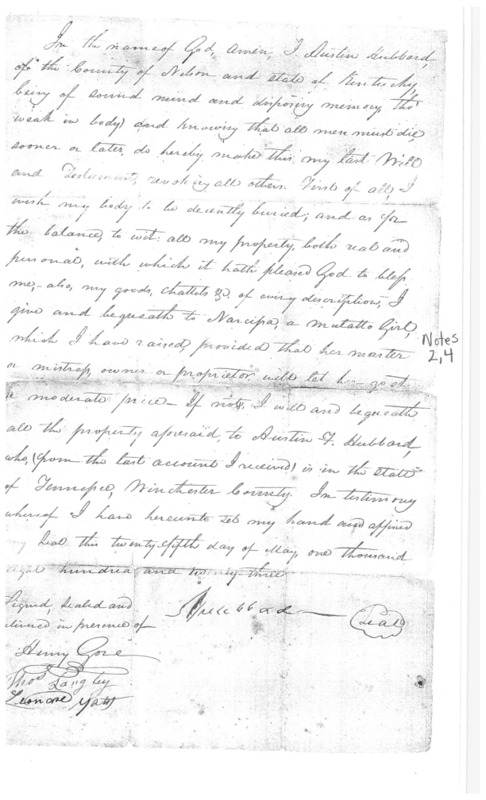 In the name of God, amen, I. Austin Hubbard,
of the County of Nelson and state of Kentucky,
being of sound mind and disposing memory (tho'
weak in body) and knowing that all men must die,
sooner or later, do hereby make this my last Will
and Testament, revoking all others. First of all, I
wish my body to be decently buried; and as for
the balance, to wit: all my property, both real and
personal, with which it hath pleased God to bless
me,- also, my goods, chattels &c. of every description, I
give and bequeath to Narcissa, a mulatto Girl,
which I have raised, provided that her master
or mistress, owner or proprietor will let her go at
a moderate price - If not, I will and bequeath
all the property, aforesaid, to Austin F. Hubbard,
who, (from the last account I received) is in the State
of Tennessee, Winchester County. In testimony
whereof I have hereunto set my hand and affixed
my Seal this twenty-fifth day of May, one thousand
eight hundred and twenty-three
Signed, Sealed and
in presence of
Hubbard
Seal
Henry Gore
Thos Langley
Yates
Notes
2,4